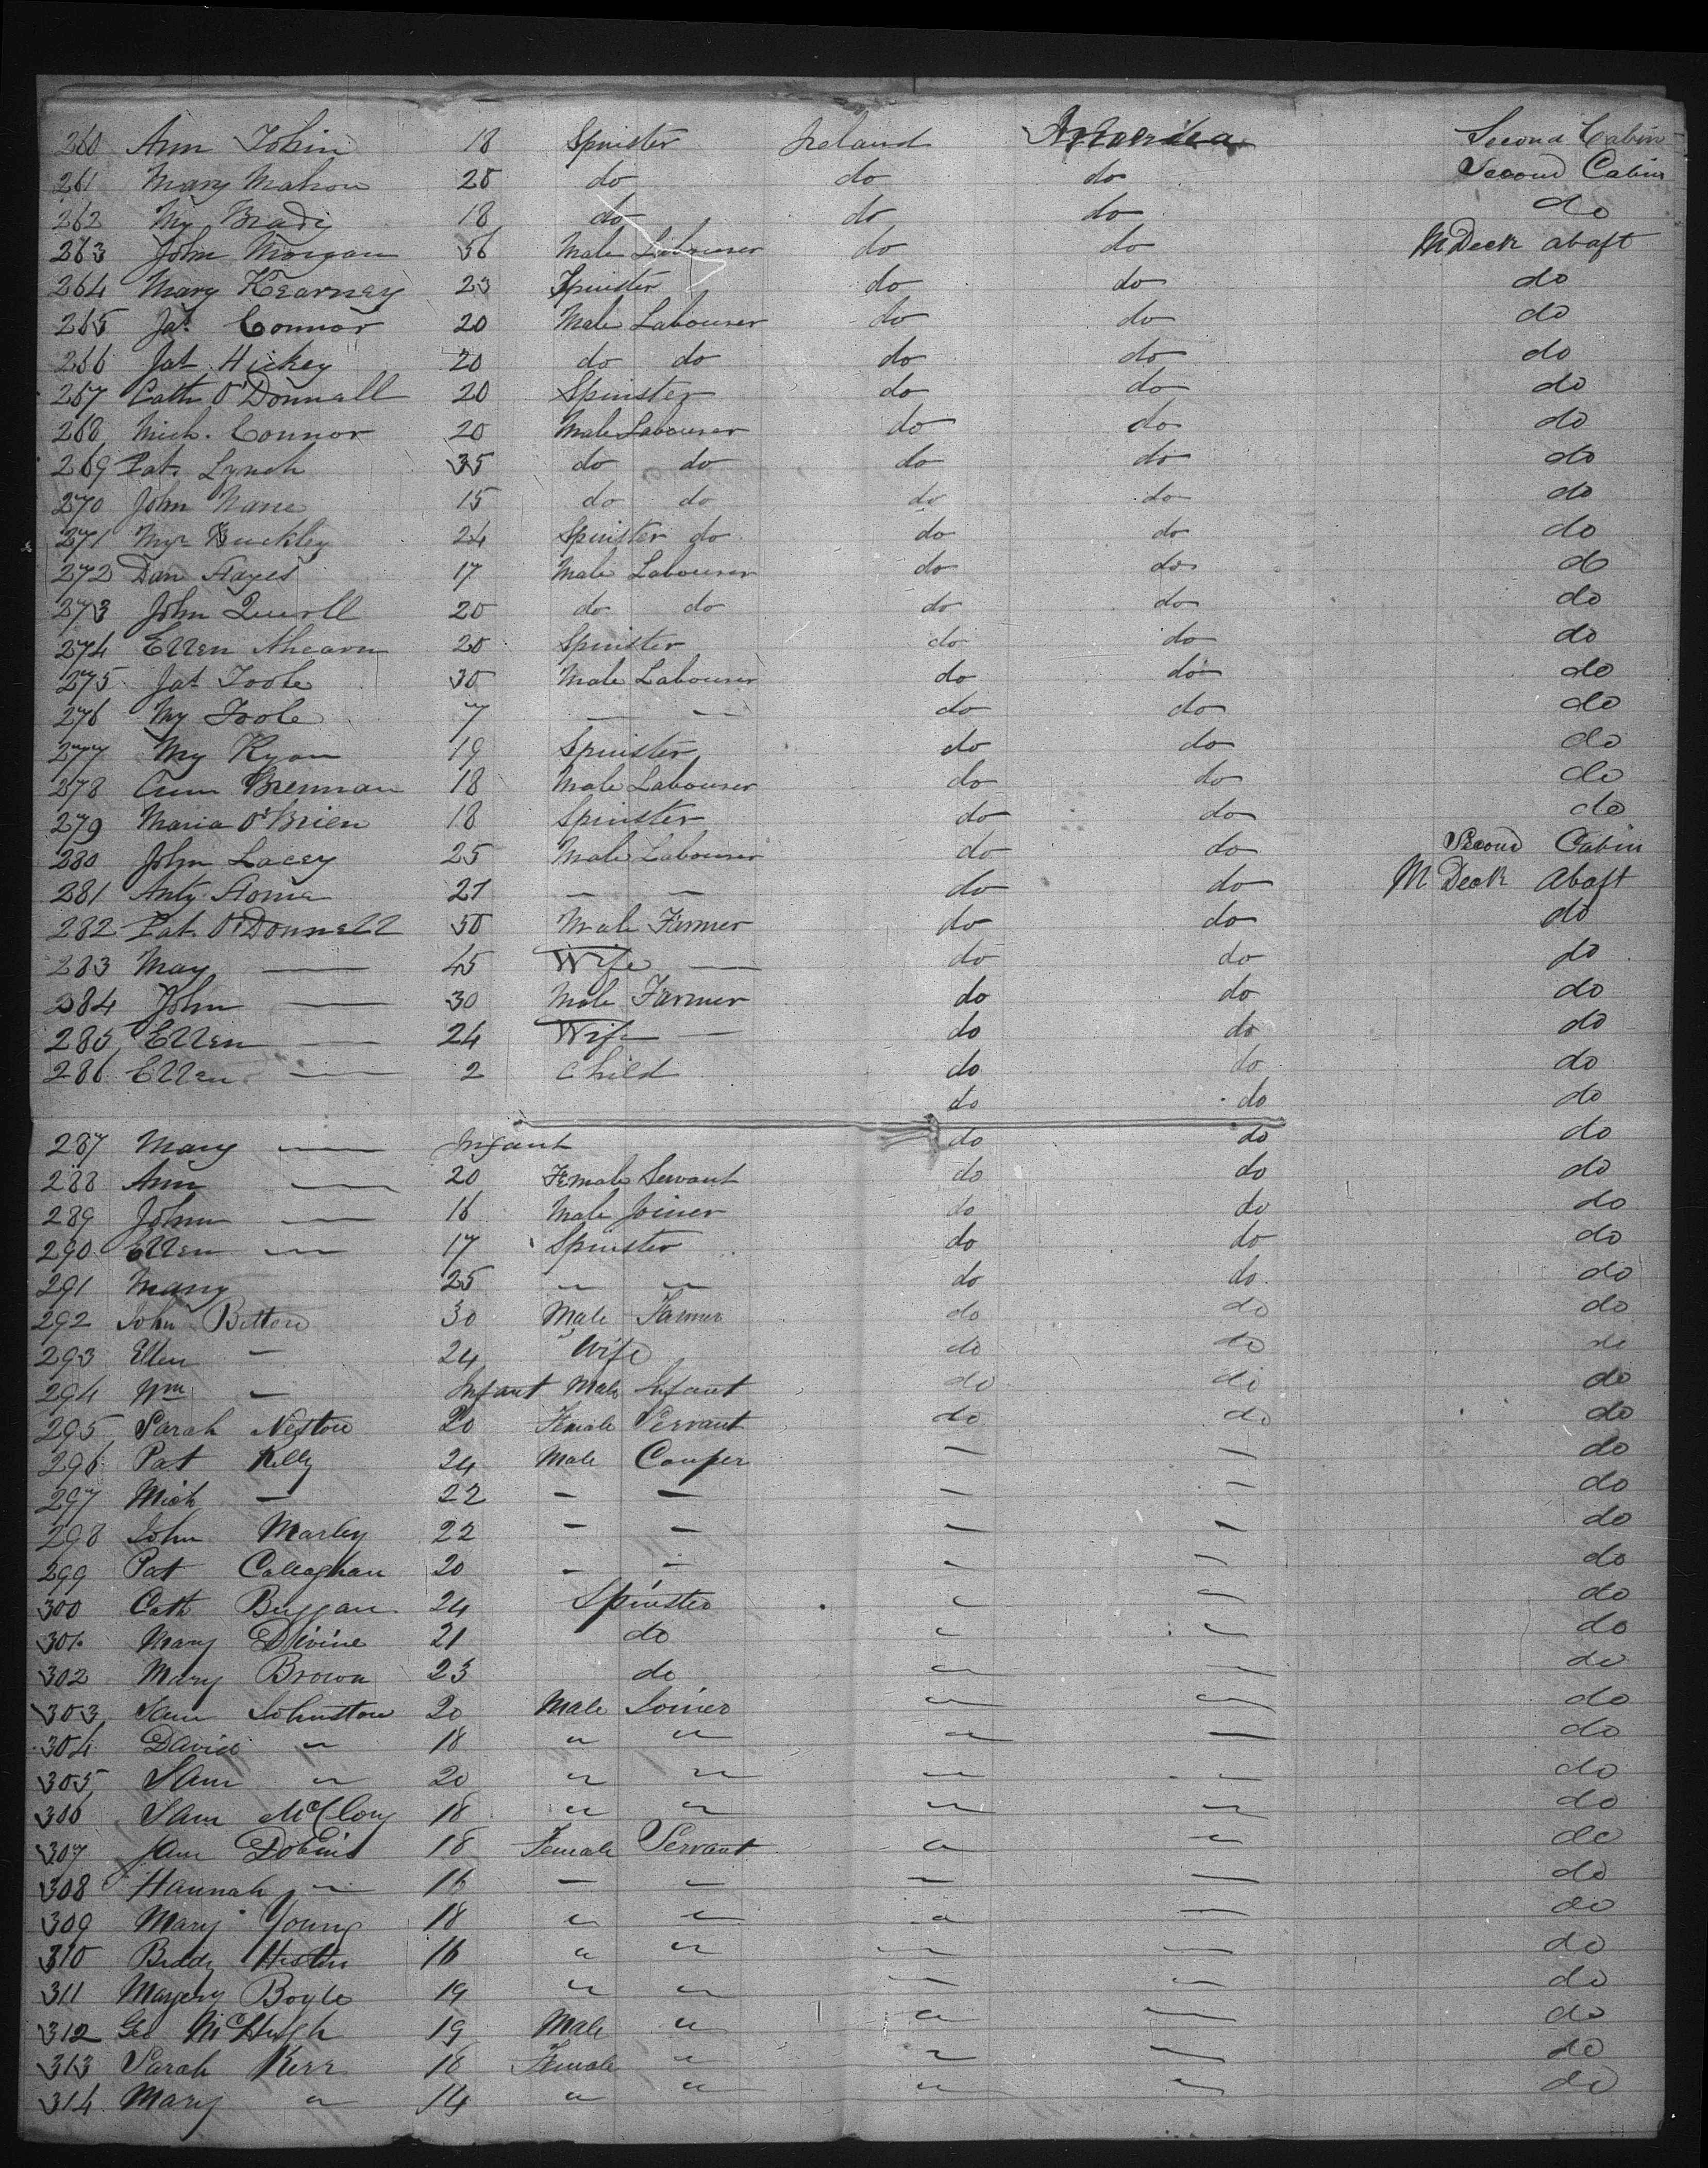 260 Ann Tobin 18 Spinster Ireland America Second Cabin
261 Mary Mahon 20 do do do Second Cabin
262 My Brady 18 do do do do
263 John Morgan 36 Male Labourer do do M Deck abaft
264 Mary Kearney 23 Spinster do do do
265 Jas Connor 20 Male Labourer do do do
266 Jas Hickey 20 do do do do do
267 Cath O'Donnall 20 Spinster do do do
268 Mich. Connor 20 Male Labourer do do do
269 Pat. Lynch 35 do do do do do
270 John 15 do do do do do
271 My Buckley 24 Spinster do do do do
272 Dan Hayes 17 Male Labourer do do do
273 John 20 do do do do do
274 Ellen Ahearn 20 Spinster do do do
275 Jas Toole 30 Male Labourer do do do
276 My Toole 7 — — do do do
277 My Ryan 19 Spinster do do do
278 Brennan 18 Male Labourer do do do
279 Maria O'Brien 18 Spinster do do do
280 John Lacey 25 Male Labourer do do Second Cabin
281 Anty 21 — — do do M Deck Abaft
282 Pat. O'Donnell 50 Male Farmer do do do
283 May — 45 Wife — do do do
284 John — 30 Male Farmer do do do
285 Ellen — 24 Wife — do do do
286 Ellen — 2 Child do do do
do do do
287 Mary — Infant do do do
288 Ann — 20 Female Servant do do do
289 John — 16 Male Joiner do do do
290 Ellen — 17 Spinster do do do
291 Mary 25 " " do do do
292 John 30 Male Farmer do do do
293 Ellen — 24 Wife do do do
294 Wm — Infant Male Infant do do do
295 Sarah 20 Female Servant do do do
296 Pat Kelly 24 Male Couper — — do
297 Mich — 22 — — — — do
298 John Marley 22 — — — — do
299 Pat Callaghan 20 — — — — do
300 Cath 24 Spinster " — do
301 Mary Divine 21 do " " do
302 Mary Brown 23 do " " do
303 Sam Johnston 20 Male Joiner " " do
304 David " 18 " " " — do
305 Sam " 20 " " " " do
306 Sam McCloy 18 " " " " do
307 Jane 18 Female Servant " " do
308 Hannah " 16 — " — — do
309 Mary Young 18 " " " — do
310 Biddy 16 " " — — do
311 Margery Boyle 19 " " — — do
312 Geo McHugh 19 Male " " — do
313 Sarah Kerr 18 Female " " — do
314 Mary " 14 " " " — do